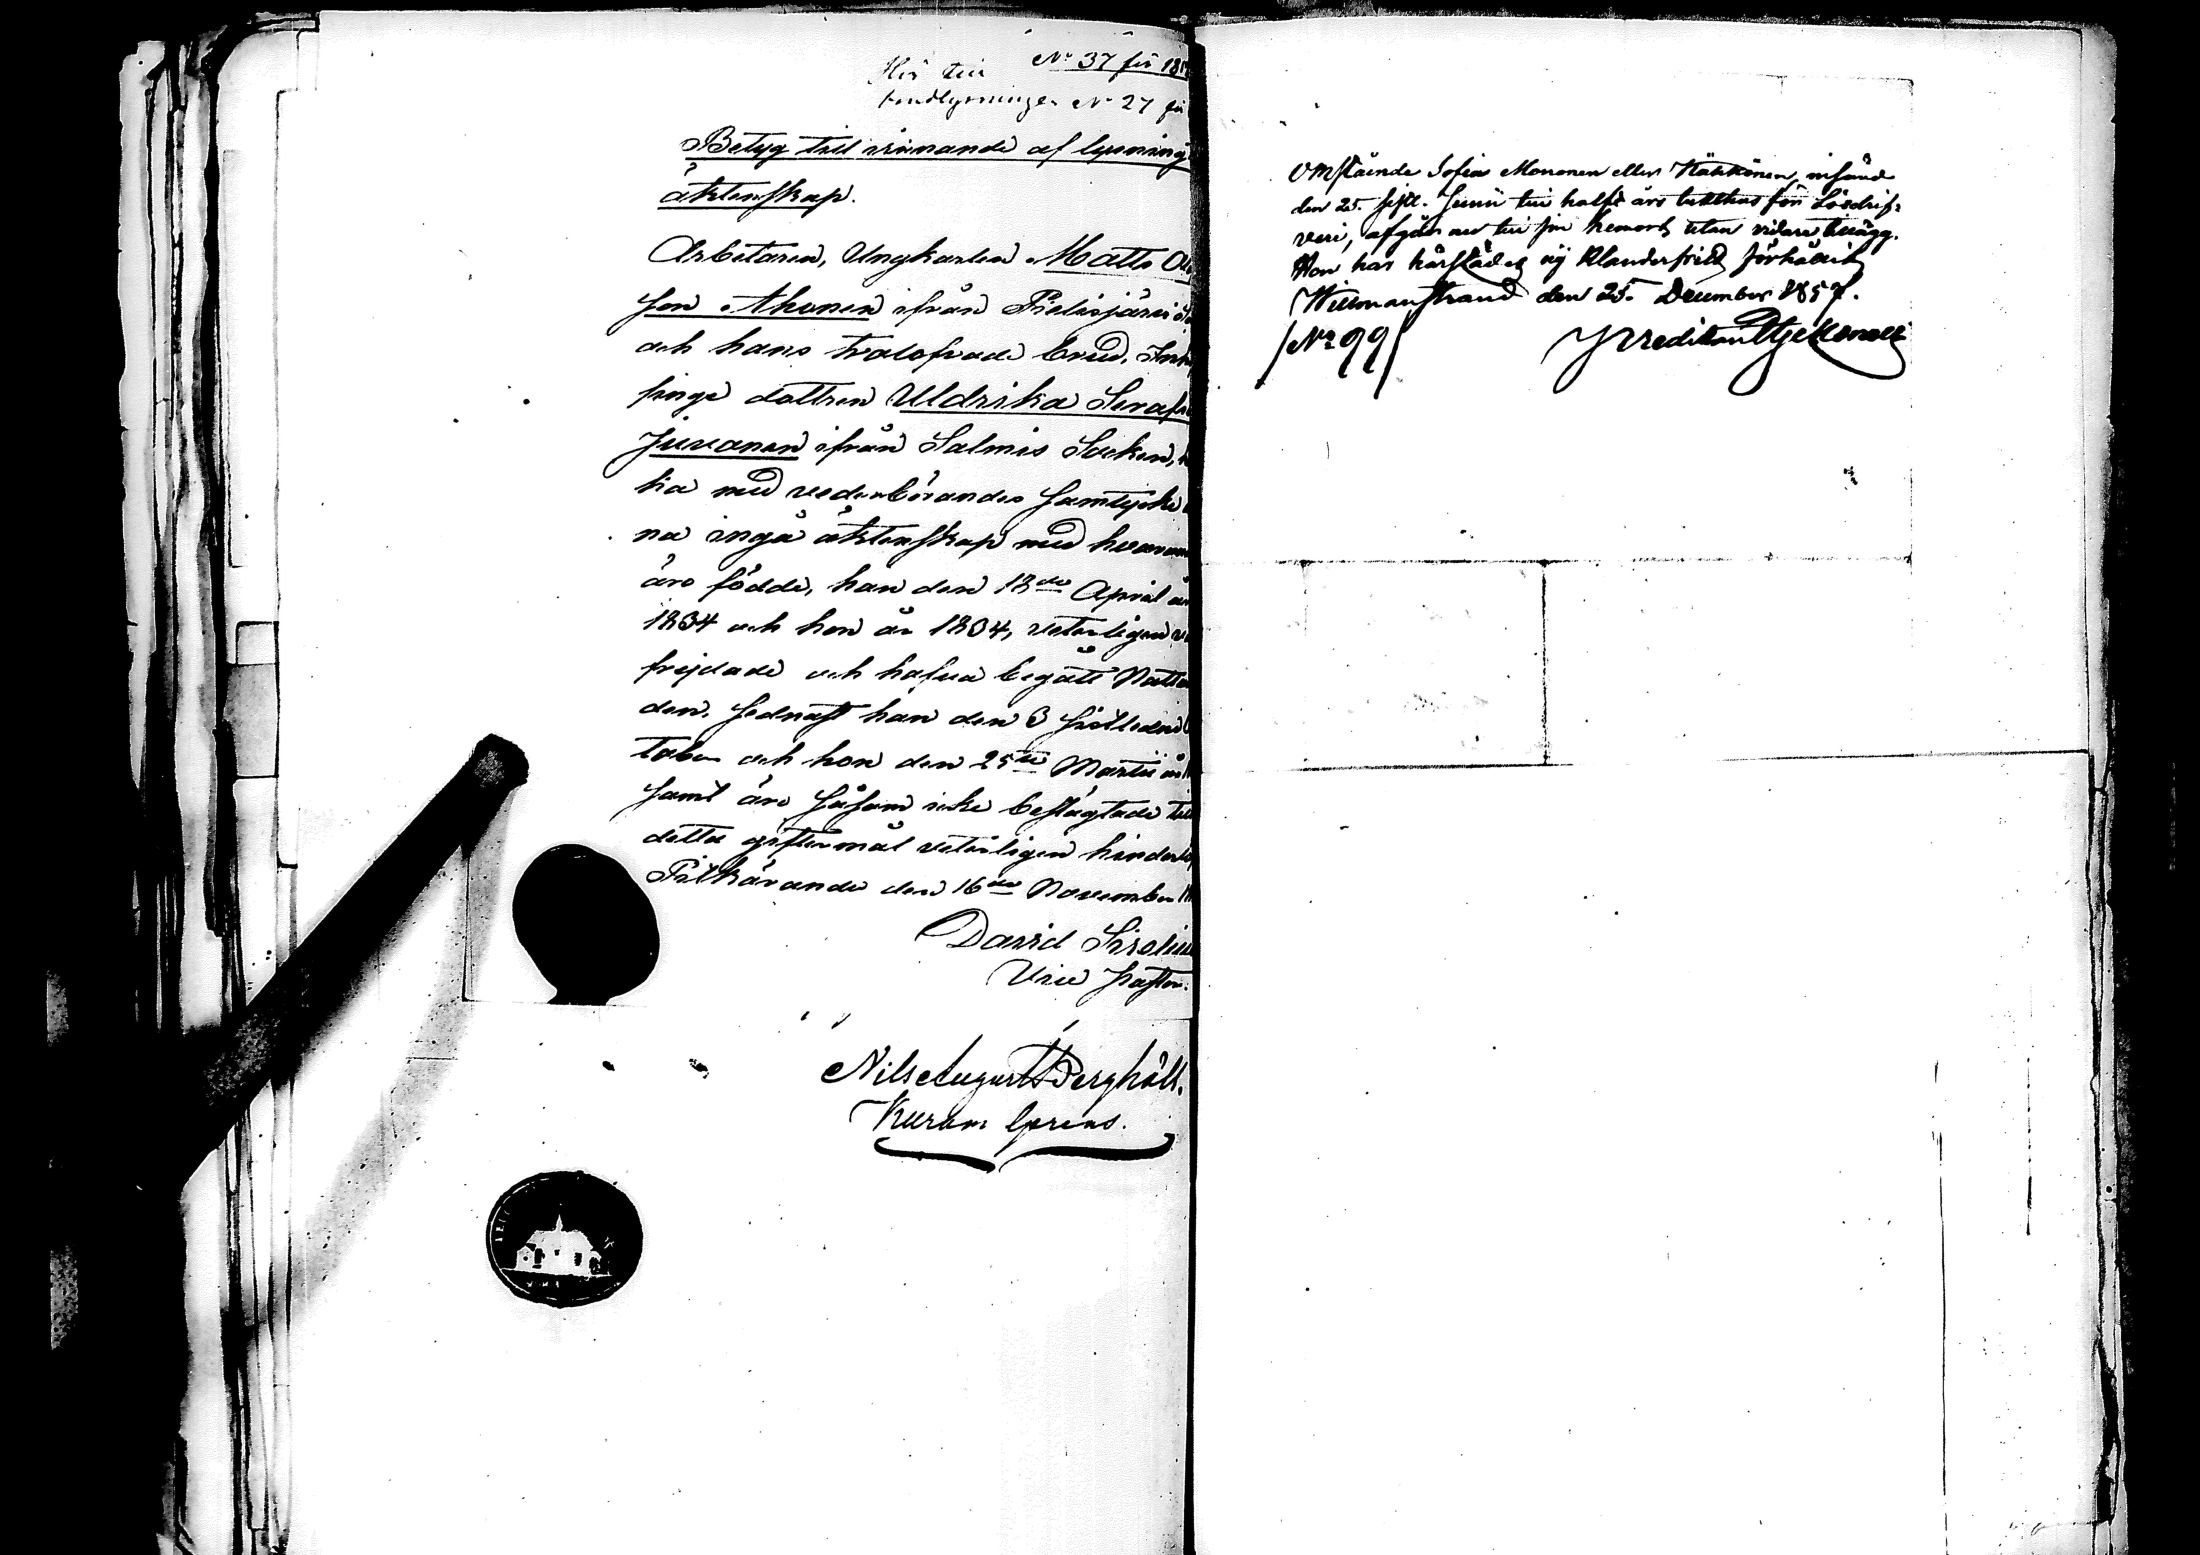 No 37 för 18
Hör till
kundlysningen No 27 för
Betyg till vinnande af lysning
äktenskap.
Arbetaren, Ungkarlen Matts
son Ahonen ifrån Pielisjärvi
och hans trolofvade brud,
dottren Uldrika Seraf
Juvonen ifrån Salmis Socken,
ka med vederbörandes samtycke
na ingå äktenskap med hvaran
äro födde, han den 18de April år
1834 och hon år 1834, veterligen
frejdade och hafva begått Natt
den, sednast han den 3 sistleden
tober och hon den 25te Martii
samt äro såsom icke beslägtade till
detta giftermål veterligen hinder
Pitkäranda den 16de November
David Sirelius
Vice Pastor.
Nils August Berghäll.
Kuram gerens.
Omstående Sofia Mononen eller Häkkönen, insänd
den 25. sistl. Junii till halft års tukthus för Lösdrif-
veri, afgår nu till sin hemort utan vidare tillägg.
Hon har härstädes ej klanderfritt förhållit
Willmanstrand den 25. December 1857.
/No 99/